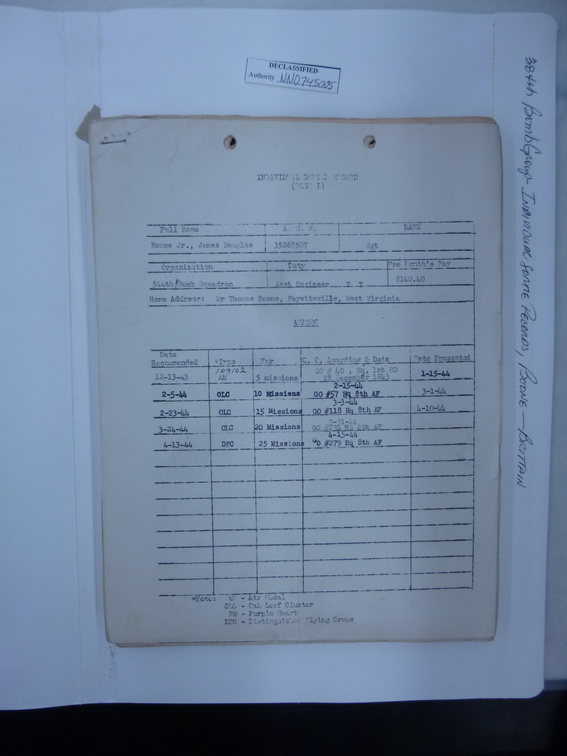 DECLASSIFIED
Authority NND745005
384th Bomb Group - Individual Sortie Records, Boone - Brittain
INDIVIDUAL SORTIE RECORD
Full Name A. S. N. RANK
Boone Jr., James Douglas 35267507 Sgt
Organization Duty One Month's Pay
544th Bomb Squadron Asst Engineer T T $140.40
Home Address: Mr Thomas Boone, Fayetteville, West Virginia
AWARDS
Date Recommended *Type For G. O. Awarding & Date Date Presented
109102
12-13-43 AM 5 missions GO # 40, Hq. 1st BD 1-15-44
28 December 1943
2-15-44
2-5-44 OLC 10 Missions GO #57 Hq 8th AF 3-1-44
3-3-44
2-23-44 OLC 15 Missions GO #118 Hq 8th AF 4-10-44
3-24-44 OLC 20 Missions Hq 8th AF
4-15-44
4-13-44 DFC 25 Missions GO #279 Hq 8th AF
*Note: AM - Air Medal
OLC - Oak Leaf Cluster
PH - Purple Heart
DFC - Distinguished Flying Cross